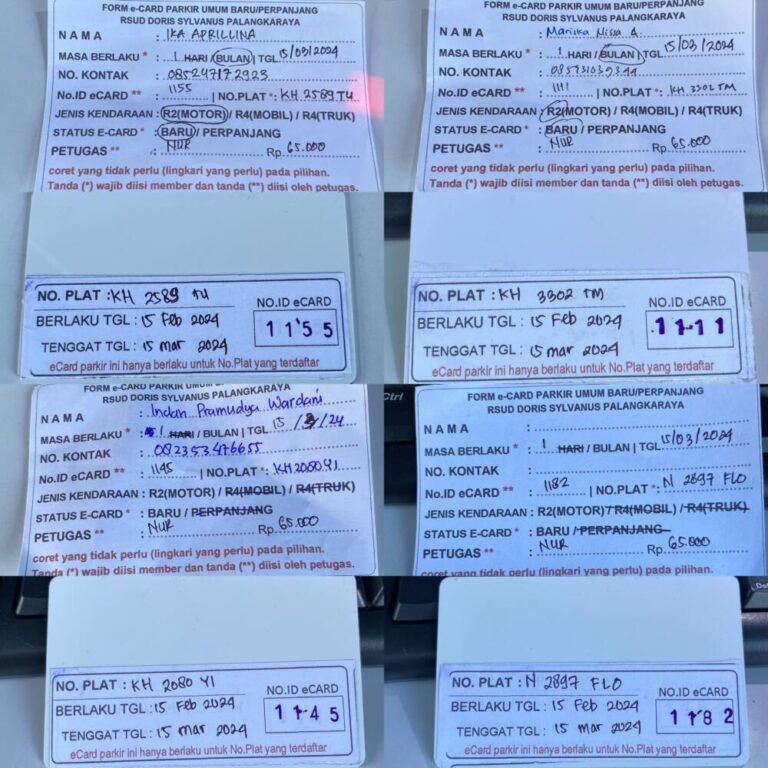 FORM e-CARD PARKIR UMUM BARU/PERPANJANG
RSUD DORIS SYLVANUS PALANGKARAYA
NAMA : IKA APRILLINA
MASA BERLAKU * : 1 HARI / BULAN | TGL 15/03/2024
NO. KONTAK : 085247172923
No.ID eCARD ** : 1155 | NO.PLAT *: KH 2589 TU
JENIS KENDARAAN : R2(MOTOR) / R4(MOBIL) / R4(TRUK)
STATUS E-CARD * : BARU / PERPANJANG
PETUGAS ** : NUR Rp. 65.000
coret yang tidak perlu (lingkari yang perlu) pada pilihan.
Tanda (*) wajib diisi member dan tanda (**) diisi oleh petugas.
FORM e-CARD PARKIR UMUM BARU/PERPANJANG
RSUD DORIS SYLVANUS PALANGKARAYA
NAMA : Nisa A.
MASA BERLAKU * : 1 HARI / BULAN | TGL 15/03/2024
NO. KONTAK :
No.ID eCARD ** : 1111 | NO.PLAT *: KH 3302 TM
JENIS KENDARAAN : R2(MOTOR) / R4(MOBIL) / R4(TRUK)
STATUS E-CARD * : BARU / PERPANJANG
PETUGAS ** : NUR Rp. 65.000
coret yang tidak perlu (lingkari yang perlu) pada pilihan.
Tanda (*) wajib diisi member dan tanda (**) diisi oleh petugas.
NO. PLAT : KH 2589 TU
NO.ID eCARD
BERLAKU TGL : 15 Feb 2024
1155
TENGGAT TGL : 15 mar 2024
eCard parkir ini hanya berlaku untuk No.Plat yang terdaftar
NO. PLAT : KH 3302 TM
NO.ID eCARD
BERLAKU TGL : 15 Feb 2024
1111
TENGGAT TGL : 15 mar 2024
eCard parkir ini hanya berlaku untuk No.Plat yang terdaftar
FORM e-CARD PARKIR UMUM BARU/PERPANJANG
RSUD DORIS SYLVANUS PALANGKARAYA
NAMA : Indan Pramudya Wardani
MASA BERLAKU * : 1 HARI / BULAN | TGL 15 / 3 / 24
NO. KONTAK : 082353476655
No.ID eCARD ** : 1145 | NO.PLAT *: KH 2080 YI
JENIS KENDARAAN : R2(MOTOR) / R4(MOBIL) / R4(TRUK)
STATUS E-CARD * : BARU / PERPANJANG
PETUGAS ** : NUR Rp. 65.000
coret yang tidak perlu (lingkari yang perlu) pada pilihan.
Tanda (*) wajib diisi member dan tanda (**) diisi oleh petugas.
Ctrl
FORM e-CARD PARKIR UMUM BARU/PERPANJANG
RSUD DORIS SYLVANUS PALANGKARAYA
NAMA :
MASA BERLAKU * : 1 HARI / BULAN | TGL 15/03/2024
NO. KONTAK :
No.ID eCARD ** : 1182 | NO.PLAT *: N 2897 FLO
JENIS KENDARAAN : R2(MOTOR) / R4(MOBIL) / R4(TRUK)
STATUS E-CARD * : BARU / PERPANJANG
PETUGAS ** : NUR Rp. 65.000
coret yang tidak perlu (lingkari yang perlu) pada pilihan.
NO. PLAT : KH 2080 YI
NO.ID eCARD
BERLAKU TGL : 15 Feb 2024
1145
TENGGAT TGL : 15 mar 2024
eCard parkir ini hanya berlaku untuk No.Plat yang terdaftar
NO. PLAT : N 2897 FLO
NO.ID eCARD
BERLAKU TGL : 15 Feb 2024
1182
TENGGAT TGL : 15 mar 2024
eCard parkir ini hanya berlaku untuk No.Plat yang terdaftar